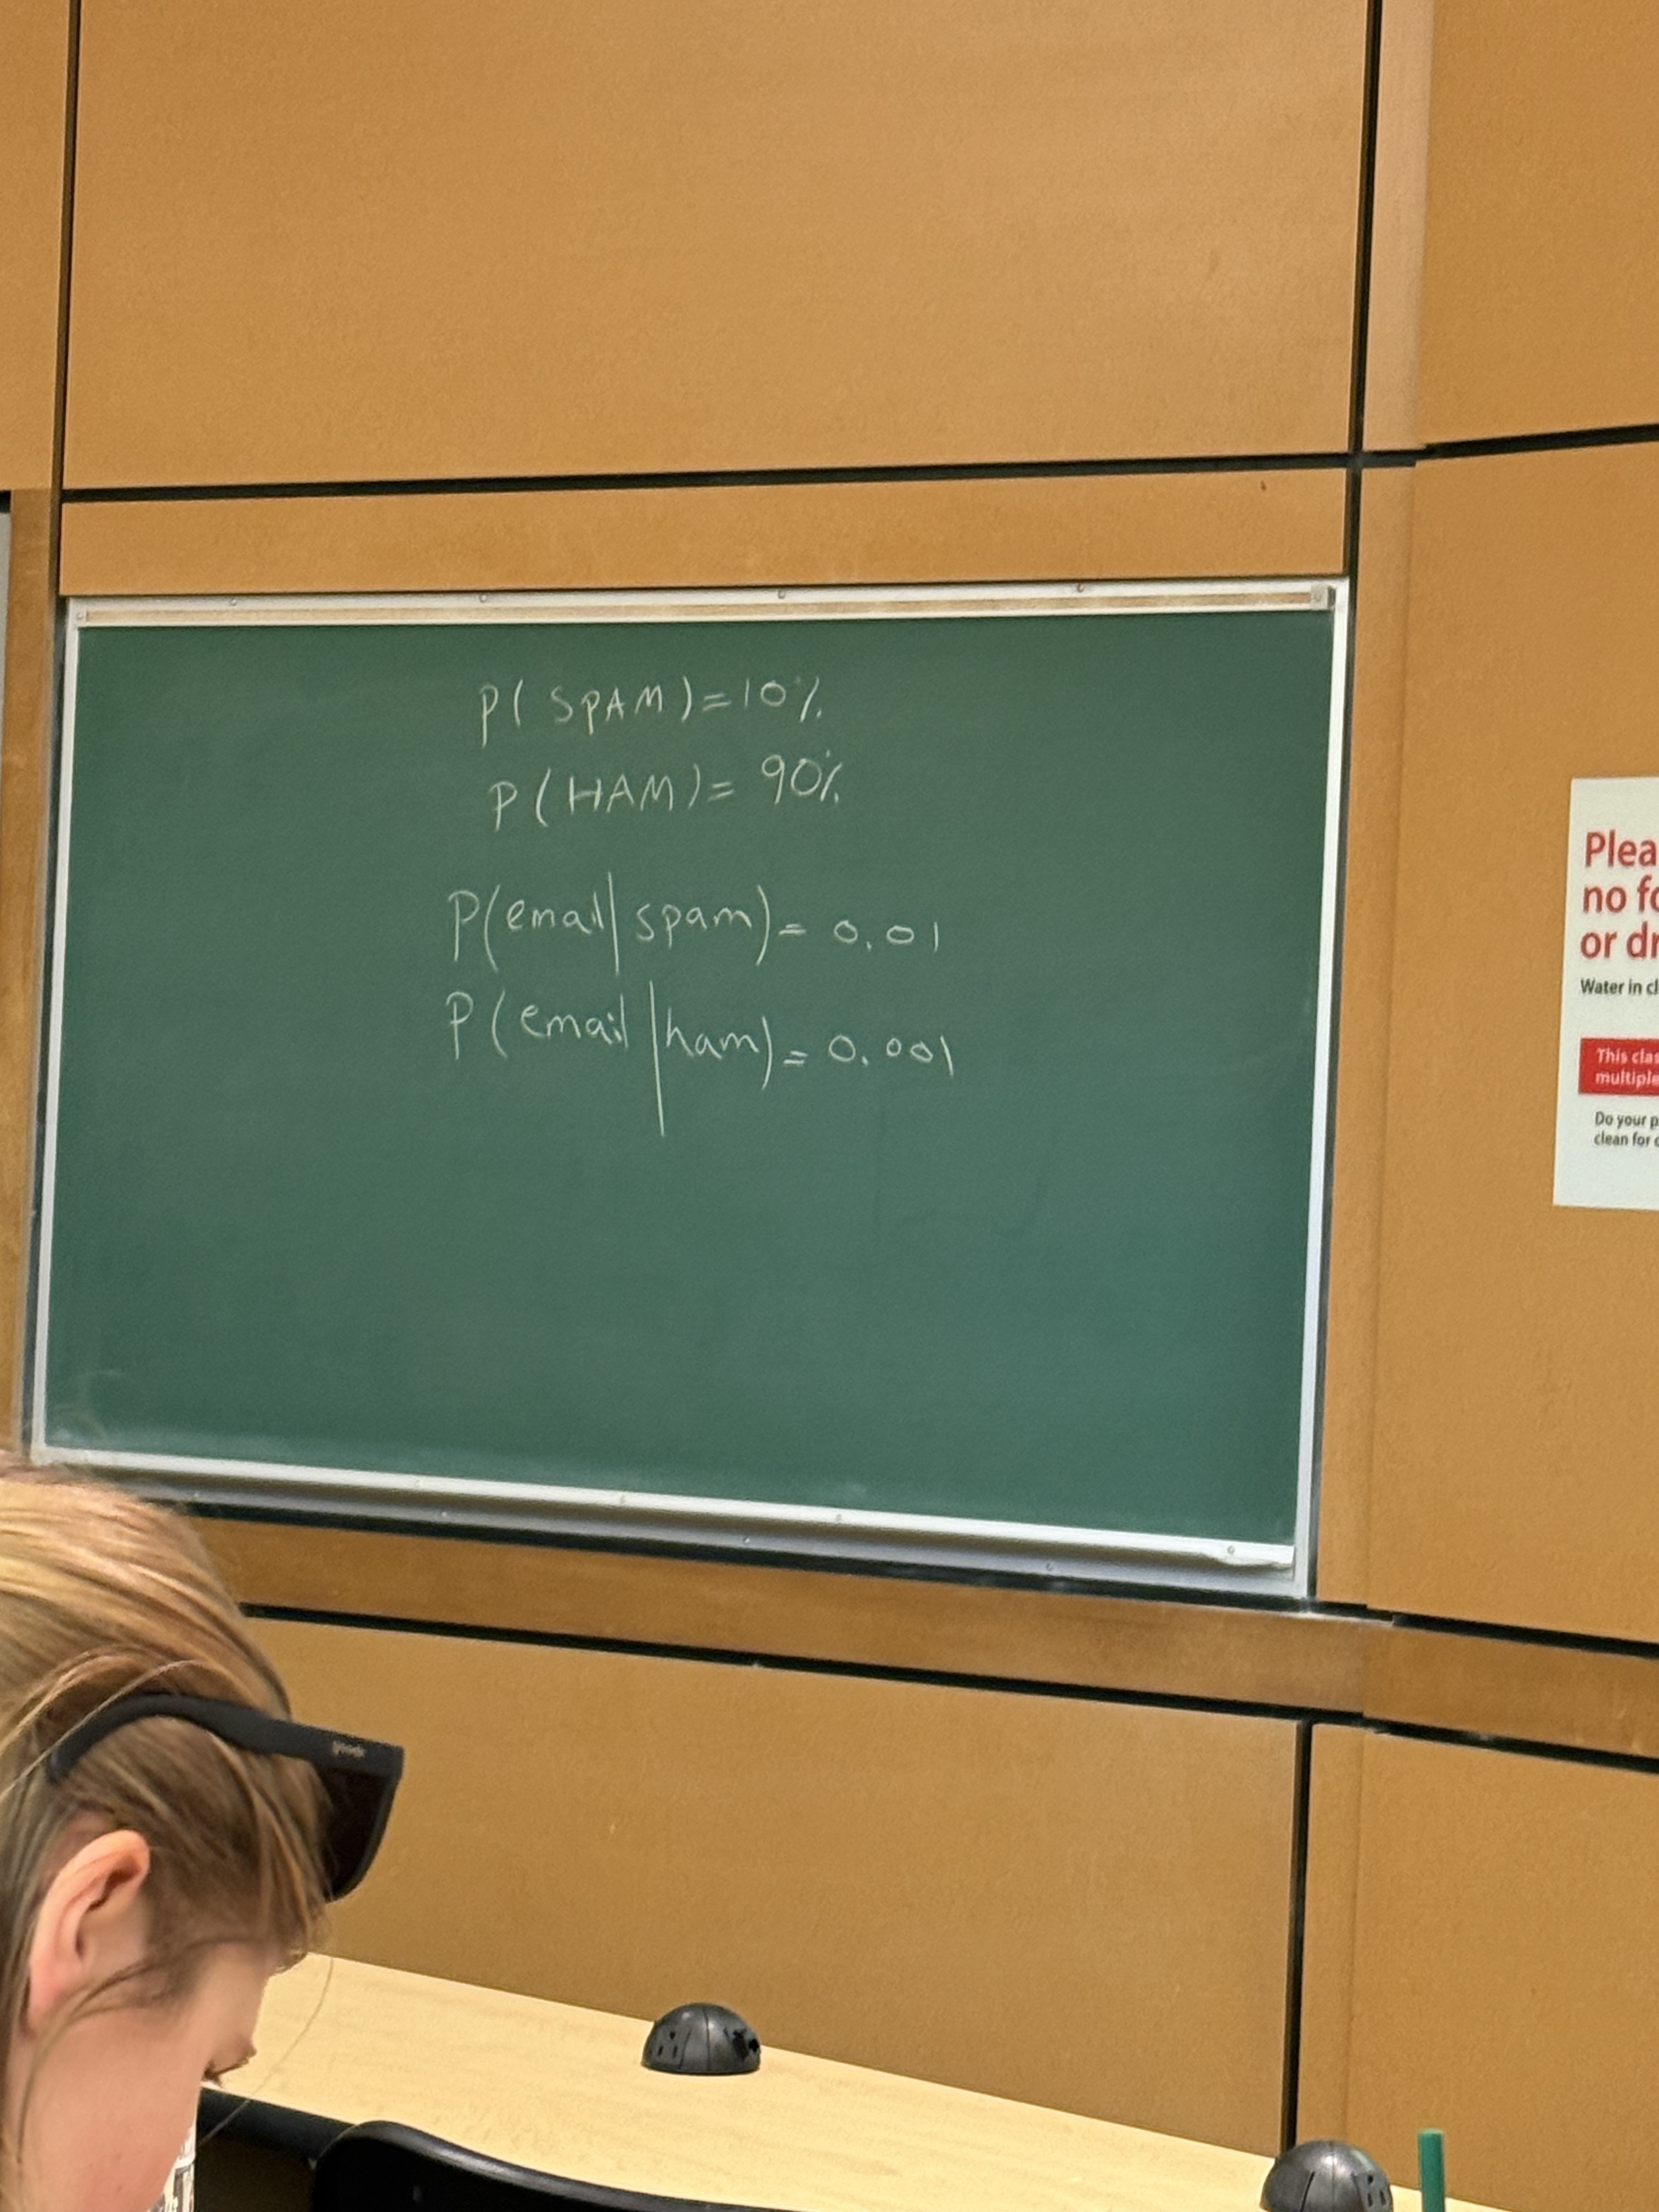 P(SPAM)=10%
P(HAM)=90%
P(email|spam)=0.01
P(email|ham)=0.001
Plea
no fo
or dr
Water in cl
This clas
multiple
Do your p
clean for
goodr